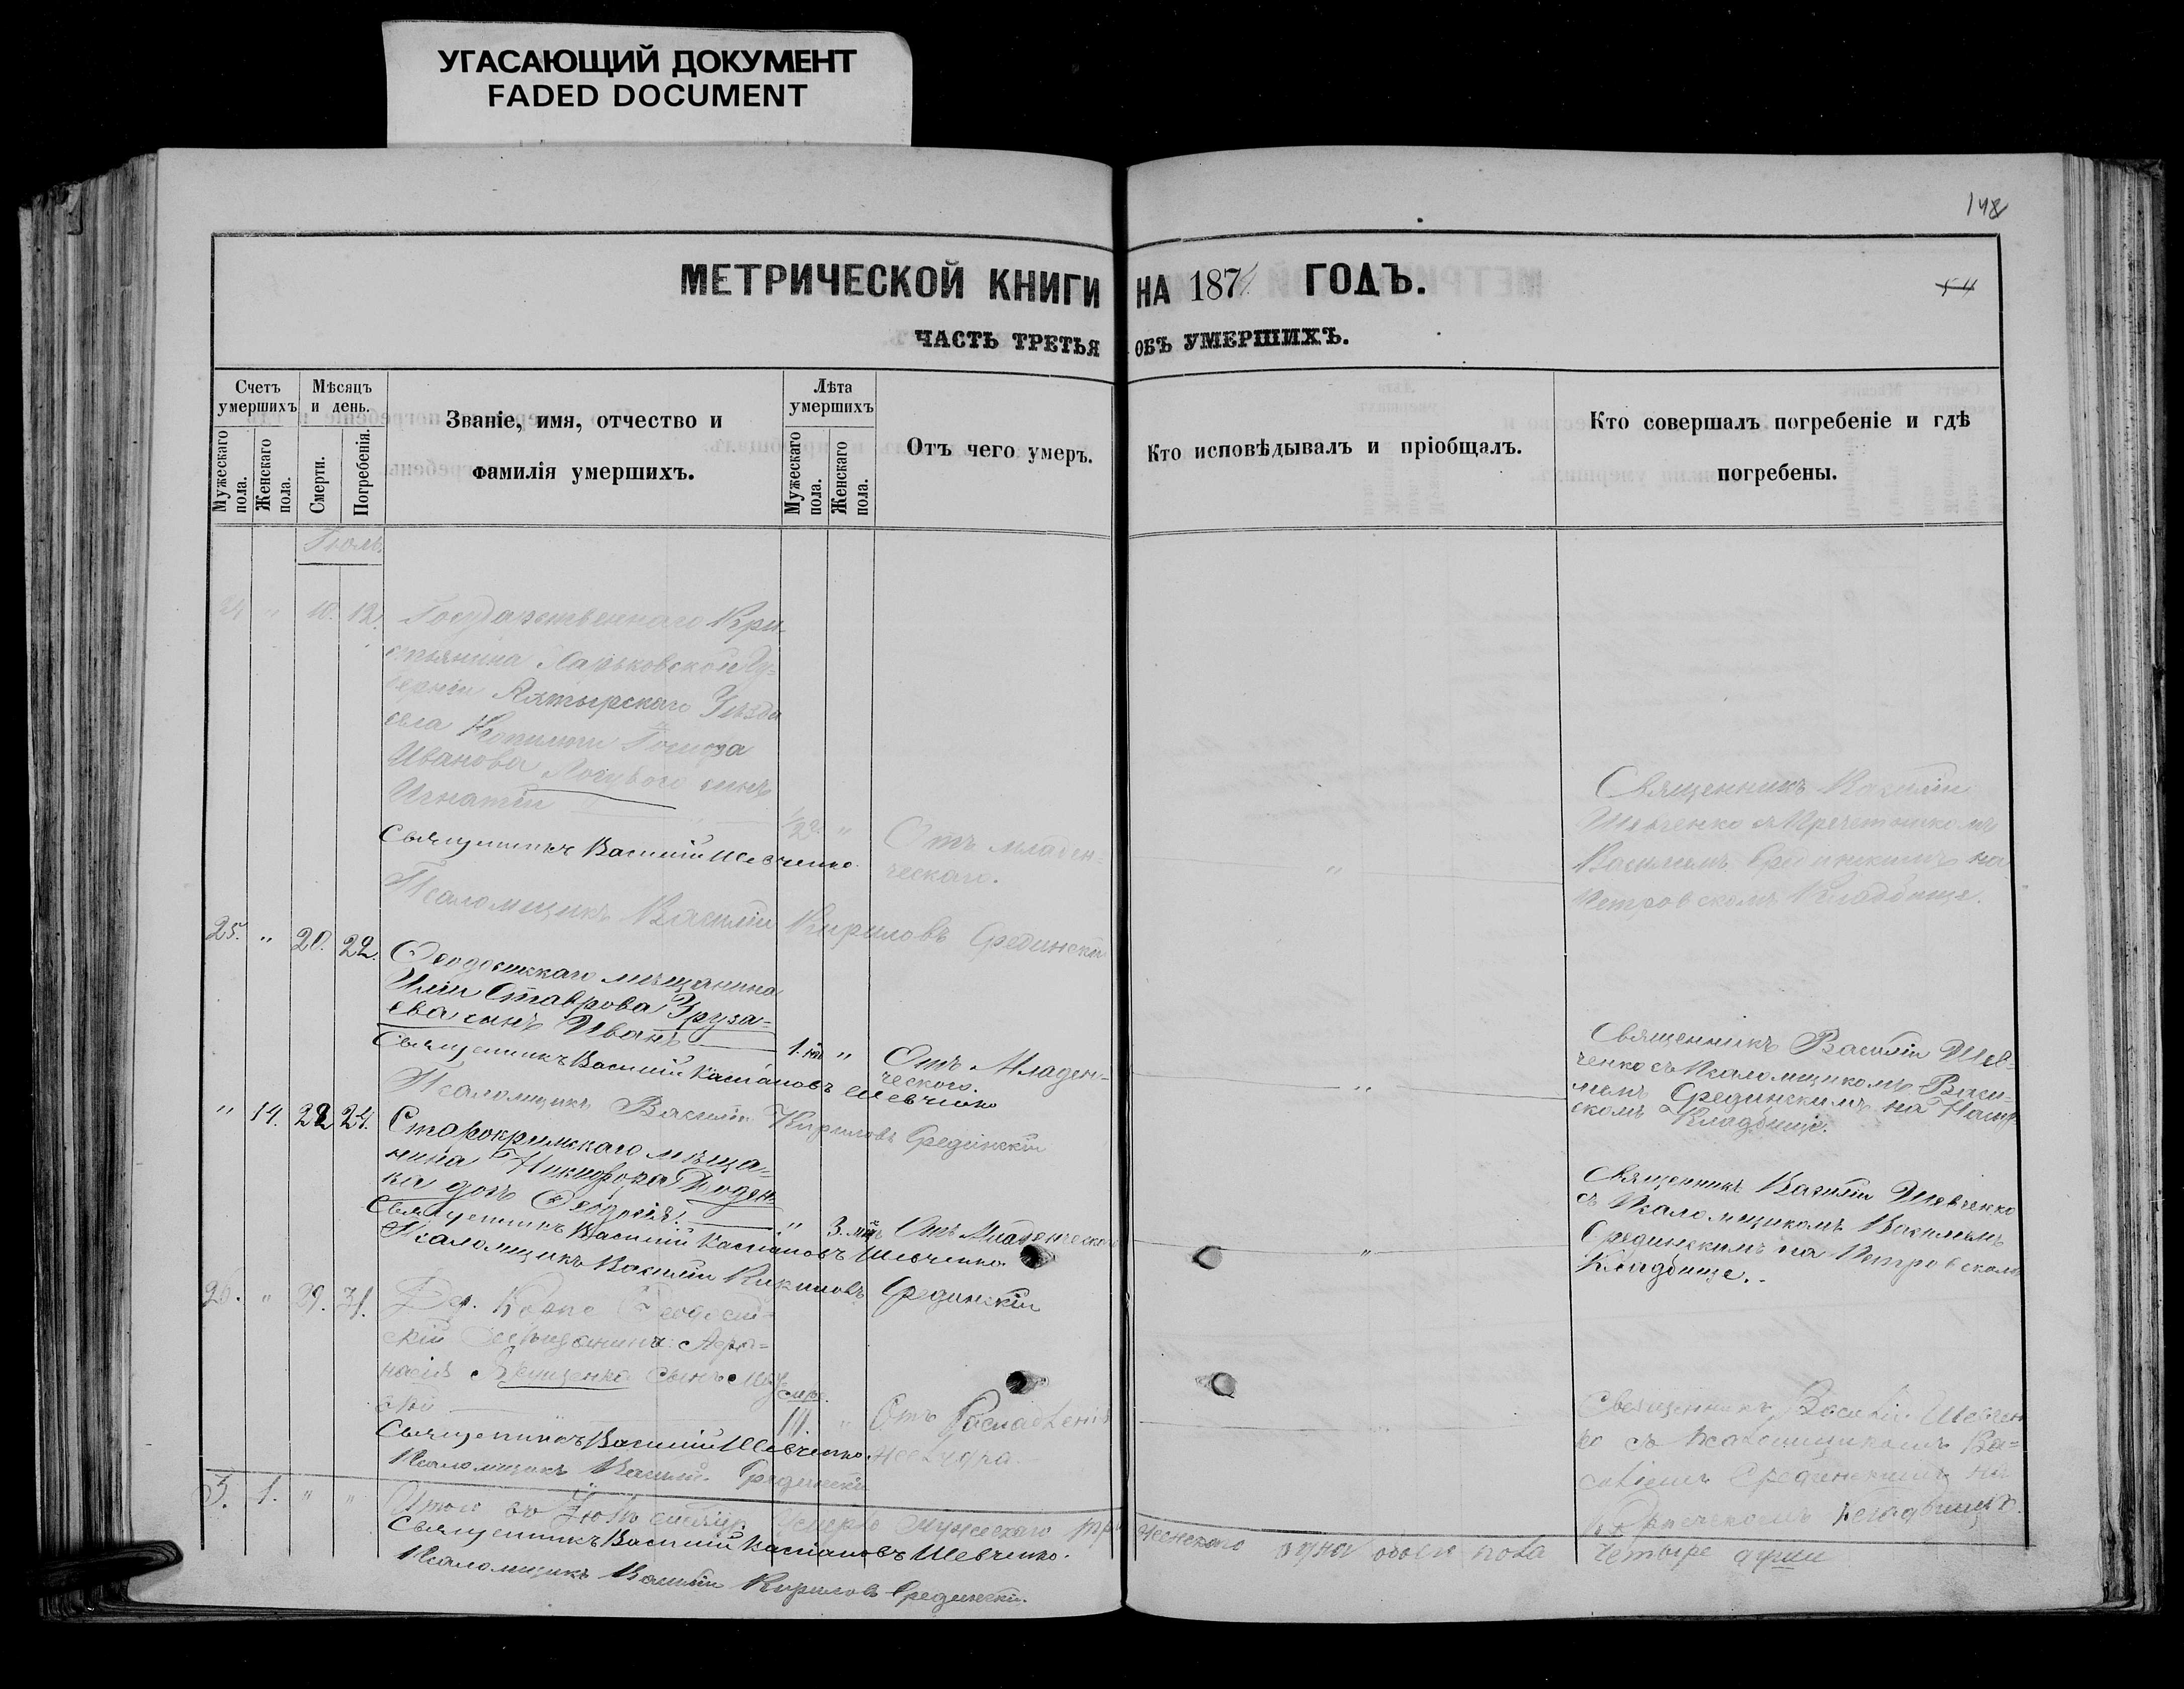 УГАСАЮЩИЙ ДОКУМЕНТ
FADED DOCUMENT
148
МЕТРИЧЕСКОЙ КНИГИ НА 1874 ГОДЪ.
54
ЧАСТЬ ТРЕТЬЯ ОБЪ УМЕРШИХЪ.
Счетъ умершихъ
Мужескаго пола.
Женскаго пола.
Мѣсяцъ и день.
Смерти.
Погребенія.
Званіе, имя, отчество и
фамилія умершихъ.
Лѣта умершихъ
Мужескаго пола.
Женскаго пола.
Отъ чего умеръ.
Кто исповѣдывалъ и пріобщалъ.
Кто совершалъ погребеніе и гдѣ
погребены.
Іюль
24 " 10. 12.
Государственнаго Кре-
стьянина Харьковской Гу-
берніи Ахтырскаго Уѣзда
села
Иванова сынъ
Игнатій
1/2 г. "
Отъ младен-
ческаго.
"
Священникъ Василій
Шевченко съ Причетникомъ
Василіемъ Срединскимъ на
Петровскомъ Кладбище.
Священникъ Василій Шевченко
Псаломщикъ Василій Кириловъ Срединскій
25. " 20. 22.
Ѳеодосійскаго мѣщанина
Иліи Ставрова
сынъ Иванъ
1. "
Отъ Младен-
ческаго.
"
Священникъ Василій Шев-
ченко съ Псаломщикомъ Васи-
ліемъ Срединскимъ на
скомъ Кладбище.
Священникъ Василій Касіановъ Шевченко
Псаломщикъ Василій Кириловъ Срединскій
" 14. 22 24.
Старокримскаго мѣща-
нина Никифора
дочь Ѳеодосія
" 3.
Отъ Младенческаго
"
Священникъ Василій Шевченко
съ Псаломщикомъ Василіемъ
Срединскимъ на Петровскомъ
Кладбище.
Священникъ Василій Касіановъ Шевченко.
Псаломщикъ Василій Кириловъ Срединскій
26. " 29. 31.
Ѳеодосій-
скій мѣщанинъ
сынъ
"
Отъ
"
Священникъ Василій Шевчен-
ко съ Псаломщикомъ Ва-
силіемъ Срединскимъ на
Кладбище.
Священникъ Василій Шевченко.
Псаломщикъ Василій Срединскій
3. 1. " "
Итого въ Іюлѣ умерло мужескаго три женскаго одна обоего пола четыре души
Священникъ Василій Касіановъ Шевченко.
Псаломщикъ Василій Кириловъ Срединскій.